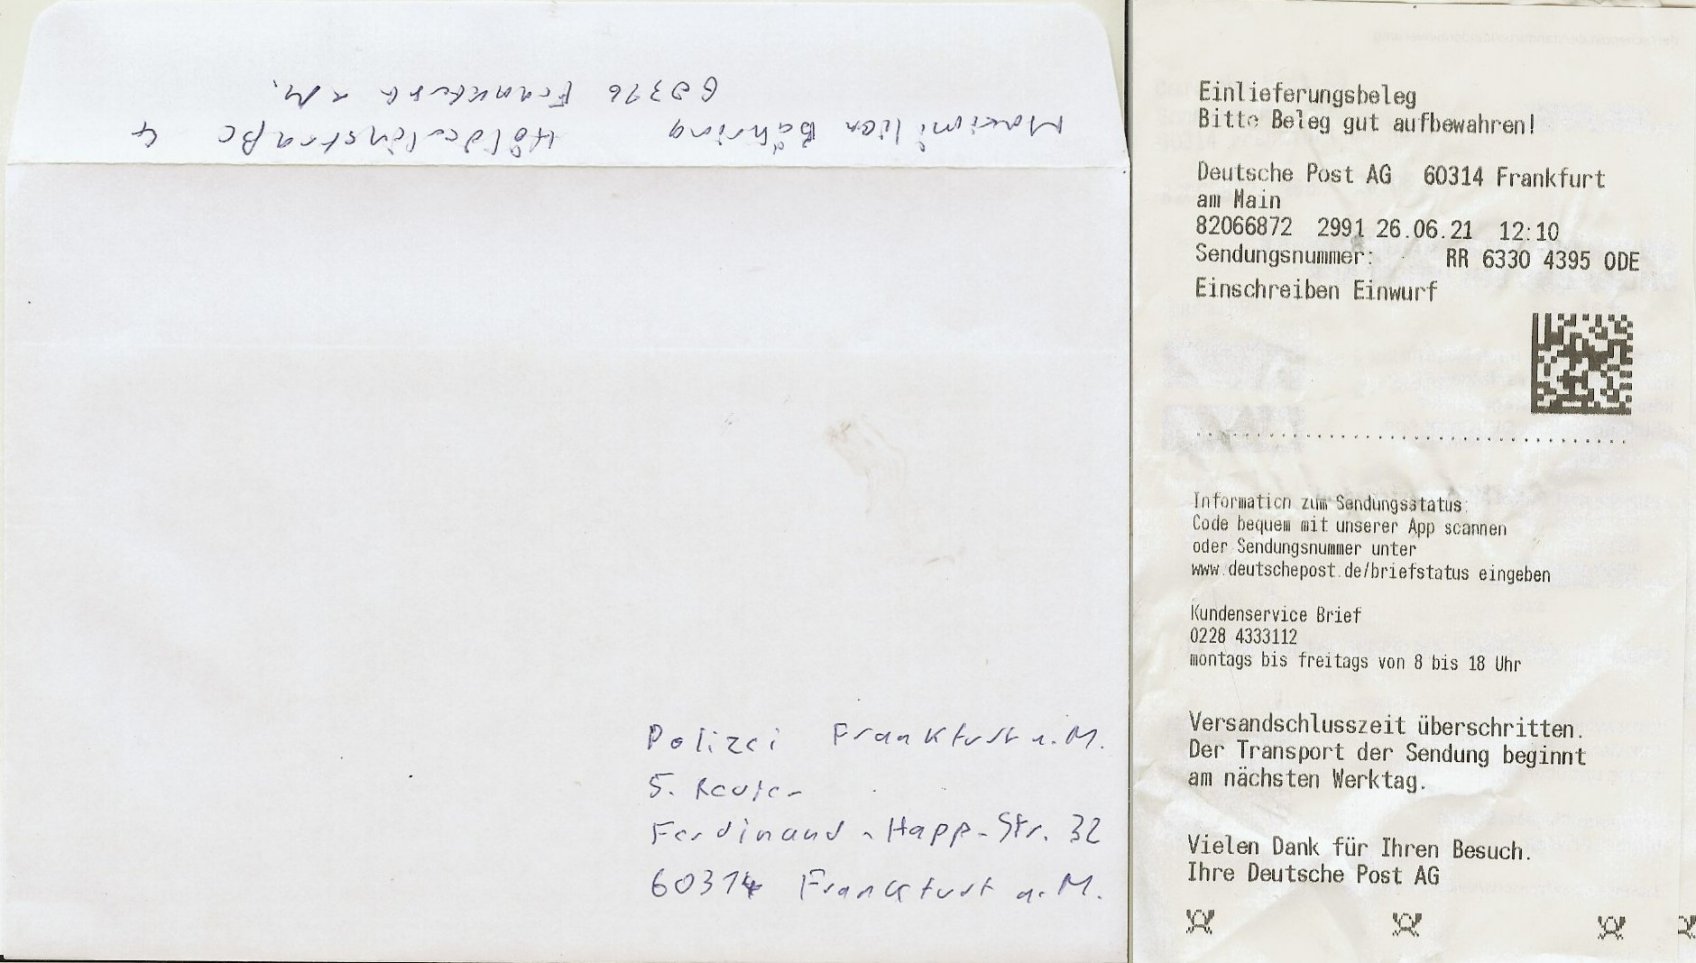 Maximilian Bähring Hölderlinstraße 4
60316 Frankfurt a. M.
Polizei Frankfurt a. M.
5. Revier
Ferdinand-Happ-Str. 32
60314 Frankfurt a. M.
Einlieferungsbeleg
Bitte Beleg gut aufbewahren!
Deutsche Post AG 60314 Frankfurt
am Main
82066872 2991 26.06.21 12:10
Sendungsnummer: RR 6330 4395 0DE
Einschreiben Einwurf
Information zum Sendungsstatus:
Code bequem mit unserer App scannen
oder Sendungsnummer unter
www.deutschepost.de/briefstatus eingeben
Kundenservice Brief
0228 4333112
montags bis freitags von 8 bis 18 Uhr
Versandschlusszeit überschritten.
Der Transport der Sendung beginnt
am nächsten Werktag.
Vielen Dank für Ihren Besuch.
Ihre Deutsche Post AG